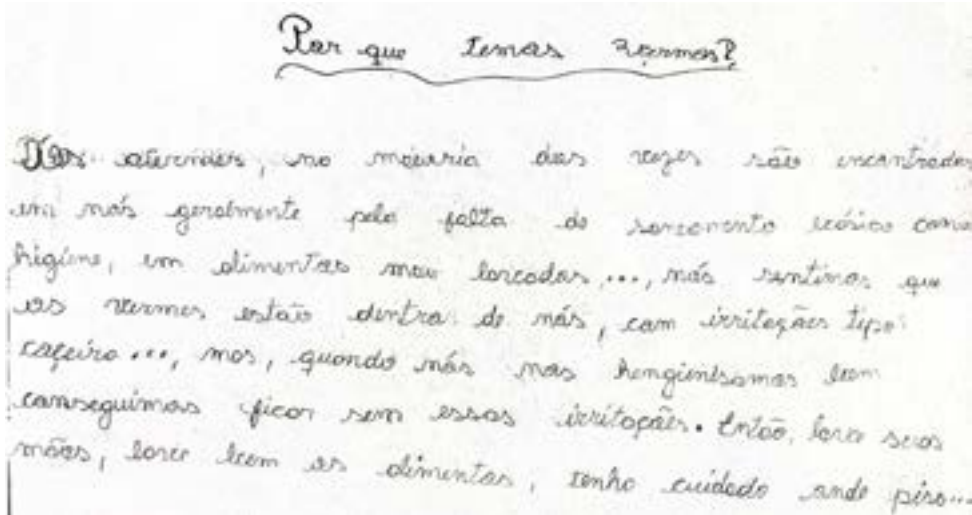 Por que temos vermes?
Os vermes, na maioria das vezes são encontrados
em nós geralmente pela falta de saneamento básico como
higiene, em alimentos mau lavados..., nós sentimos que
os vermes estão dentro de nós, com irritações tipo:
..., mas, quando nós nos bem
conseguimos ficar sem essas irritações. Então, lave suas
mãos, lave bem os alimentos, tenha cuidado onde pisa...